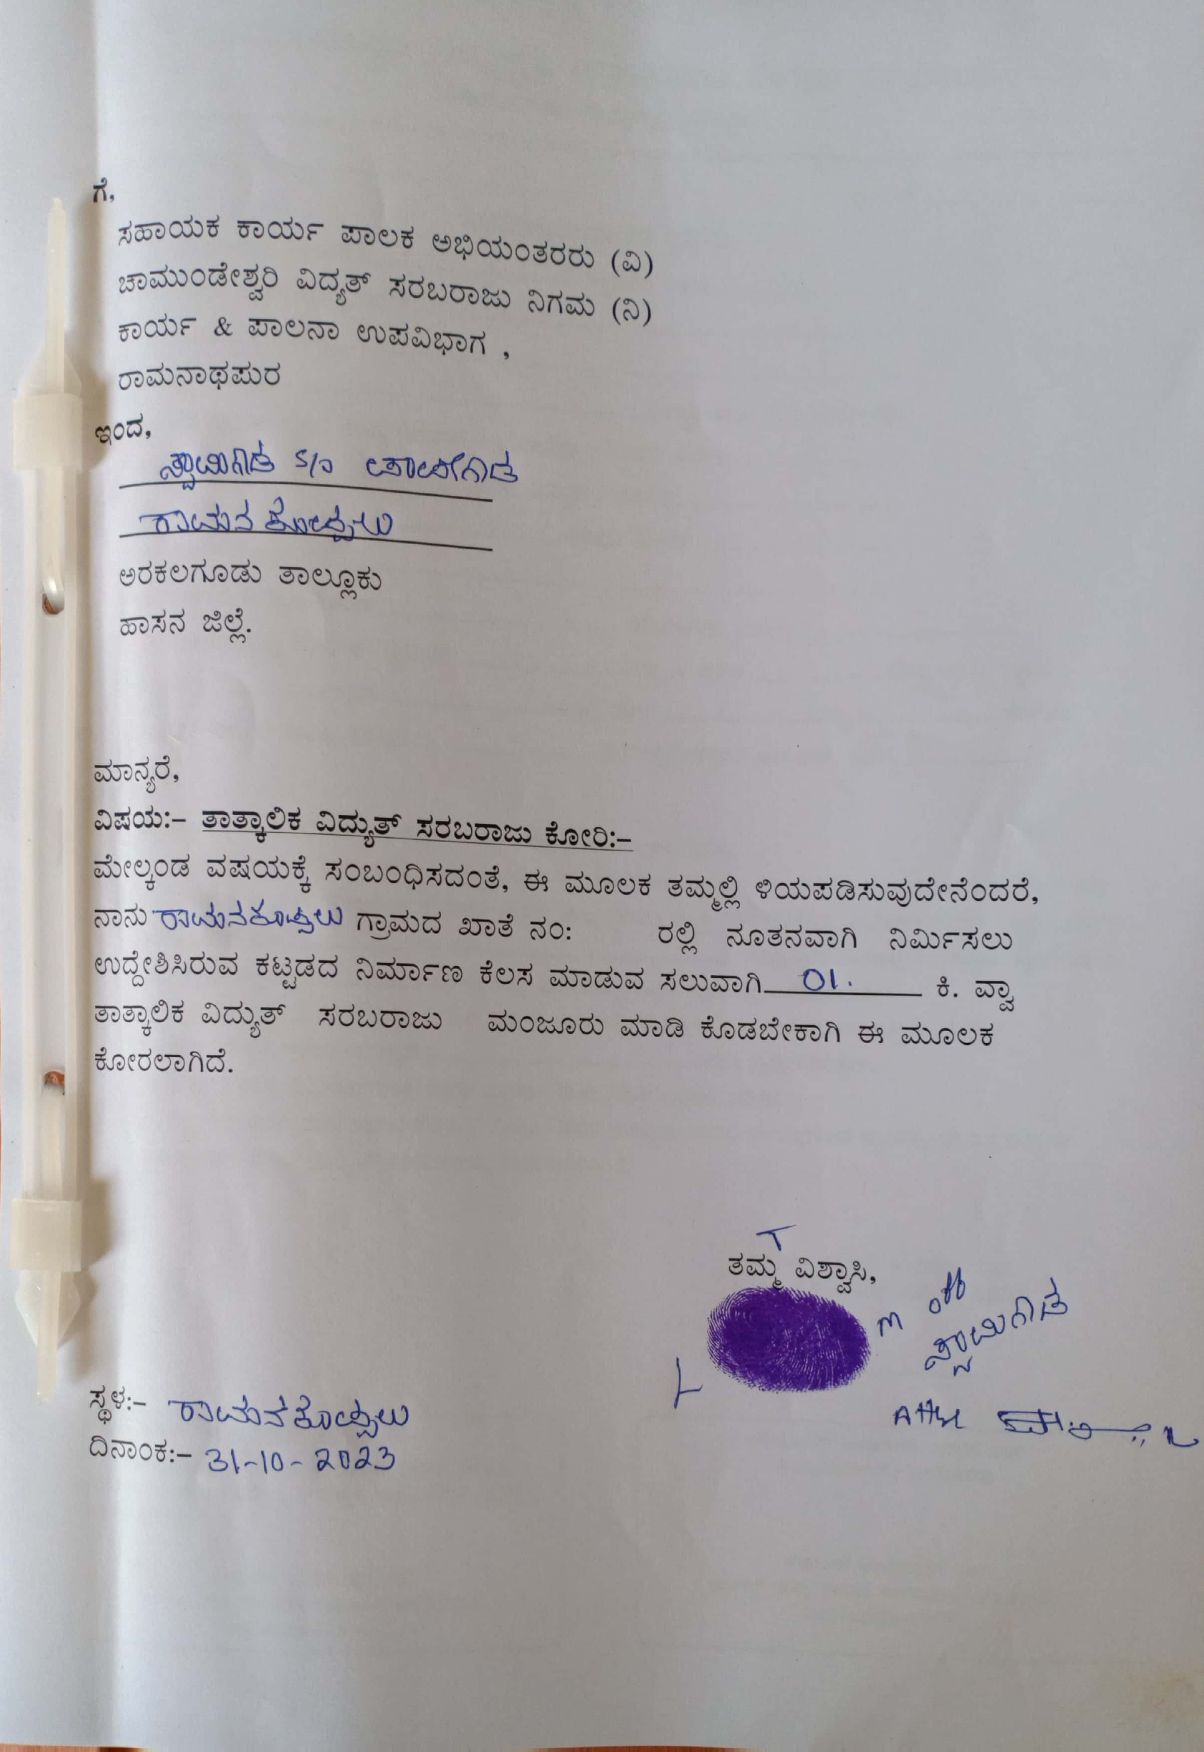 ಗೆ,
ಸಹಾಯಕ ಕಾರ್ಯ ಪಾಲಕ ಅಭಿಯಂತರರು (ವಿ)
ಚಾಮುಂಡೇಶ್ವರಿ ವಿದ್ಯತ್ ಸರಬರಾಜು ನಿಗಮ (ನಿ)
ಕಾರ್ಯ & ಪಾಲನಾ ಉಪವಿಭಾಗ ,
ರಾಮನಾಥಪುರ
ಇಂದ,
ಸ್ವಾಮಿಗೌಡ S/o
ರಾಮನಕೊಪ್ಪಲು
ಅರಕಲಗೂಡು ತಾಲ್ಲೂಕು
ಹಾಸನ ಜಿಲ್ಲೆ.
ಮಾನ್ಯರೆ,
ವಿಷಯ:– ತಾತ್ಕಾಲಿಕ ವಿದ್ಯುತ್ ಸರಬರಾಜು ಕೋರಿ:–
ಮೇಲ್ಕಂಡ ವಷಯಕ್ಕೆ ಸಂಬಂಧಿಸದಂತೆ, ಈ ಮೂಲಕ ತಮ್ಮಲ್ಲಿ ಳಿಯಪಡಿಸುವುದೇನೆಂದರೆ,
ನಾನು ರಾಮನಕೊಪ್ಪಲು ಗ್ರಾಮದ ಖಾತೆ ನಂ: ರಲ್ಲಿ ನೂತನವಾಗಿ ನಿರ್ಮಿಸಲು
ಉದ್ದೇಶಿಸಿರುವ ಕಟ್ಟಡದ ನಿರ್ಮಾಣ ಕೆಲಸ ಮಾಡುವ ಸಲುವಾಗಿ 01. ಕಿ. ವ್ವಾ
ತಾತ್ಕಾಲಿಕ ವಿದ್ಯುತ್ ಸರಬರಾಜು ಮಂಜೂರು ಮಾಡಿ ಕೊಡಬೇಕಾಗಿ ಈ ಮೂಲಕ
ಕೋರಲಾಗಿದೆ.
T
ತಮ್ಮ ವಿಶ್ವಾಸಿ,
L m of
ಸ್ವಾಮಿಗೌಡ
ಸ್ಥಳ:– ರಾಮನಕೊಪ್ಪಲು
ದಿನಾಂಕ:– 31-10-2023